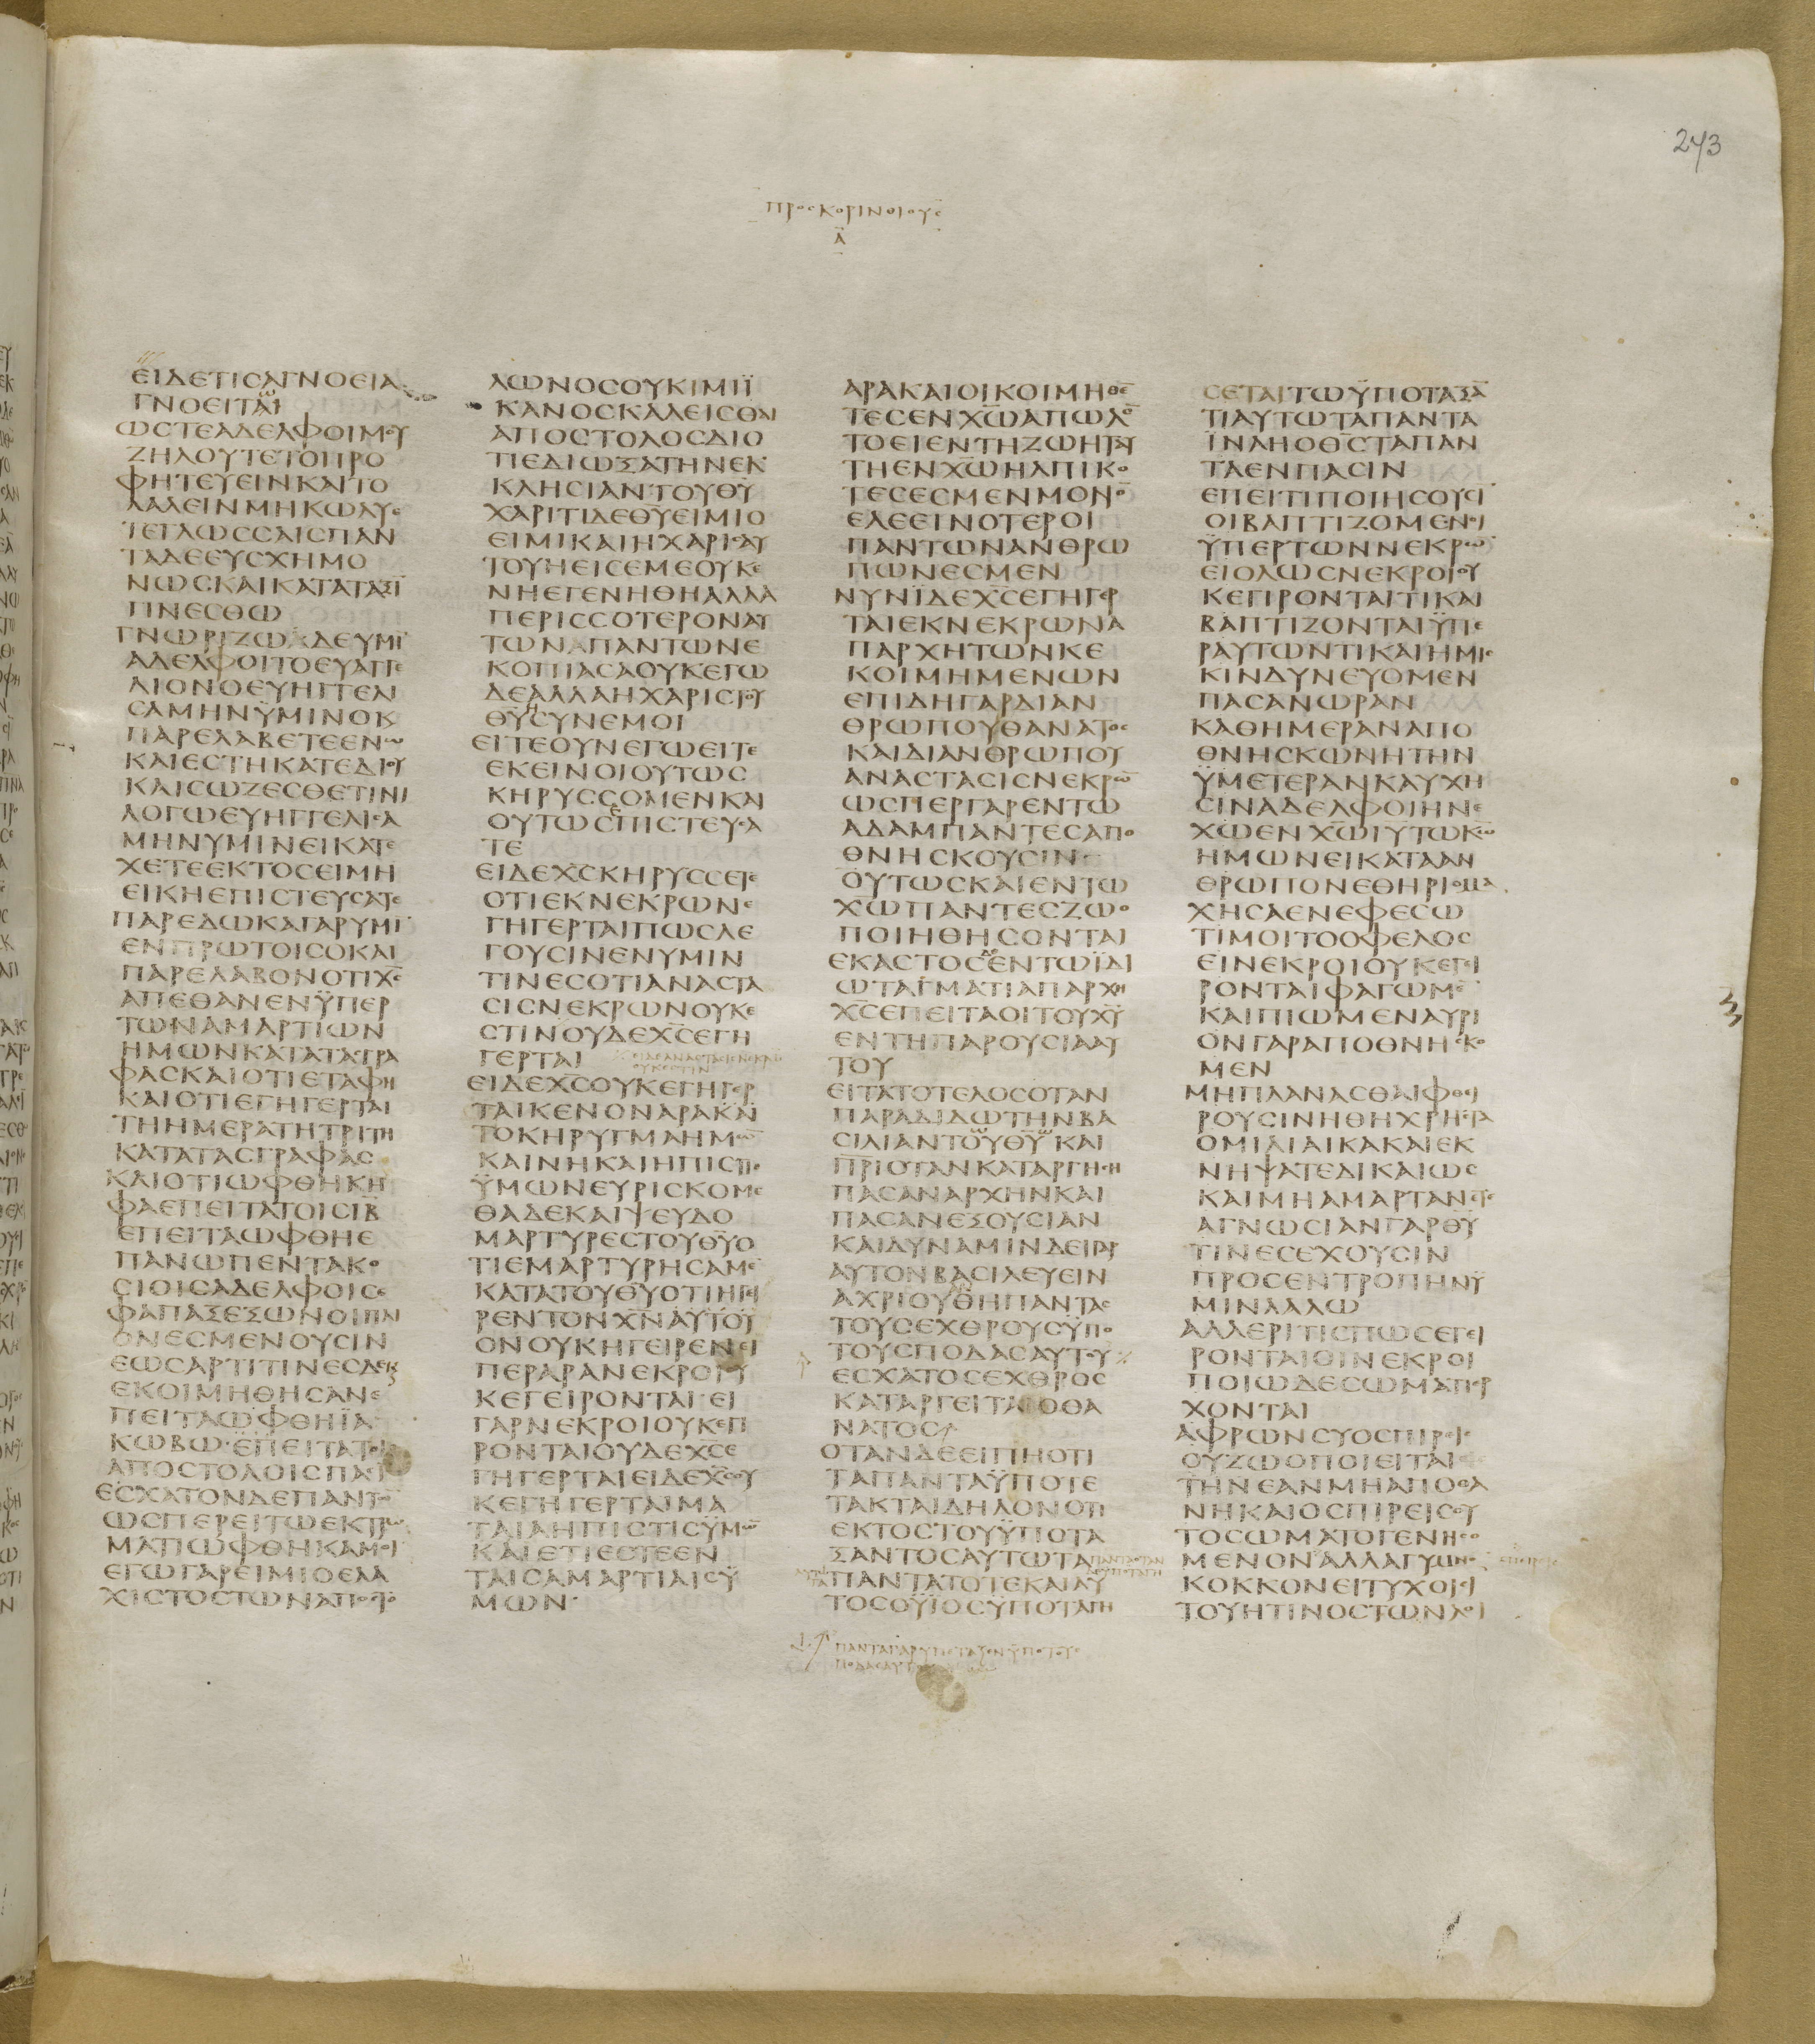 243
ΠΡΟΣ ΚΟΡΙΝΘΙΟΥΣ
Α
ΕΙΔΕΤΙCΑΓΝΟΕΙΑ
ΓΝΟΕΙΤΑΙ
ΩCΤΕΑΔΕΛΦΟΙΜΟΥ
ΖΗΛΟΥΤΕΤΟΠΡΟ
ΦΗΤΕΥΕΙΝΚΑΙΤΟ
ΛΑΛΕΙΝΜΗΚΩΛΥΕ
ΤΕΓΛΩCCΑΙCΠΑΝ
ΤΑΔΕΕΥCΧΗΜΟ
ΝΩCΚΑΙΚΑΤΑΤΑΞΙ
ΓΙΝΕCΘΩ
ΓΝΩΡΙΖΩΔΕΥΜΙ
ΑΔΕΛΦΟΙΤΟΕΥΑΓΓΕ
ΛΙΟΝΟΕΥΗΓΓΕΛΙ
CΑΜΗΝΫΜΙΝΟΚ
ΠΑΡΕΛΑΒΕΤΕΕΝΩ
ΚΑΙΕCΤΗΚΑΤΕΔΙΟΥ
ΚΑΙCΩΖΕCΘΕΤΙΝΙ
ΛΟΓΩΕΥΗΓΓΕΛΙCΑ
ΜΗΝΥΜΙΝΕΙΚΑΤΕ
ΧΕΤΕΕΚΤΟCΕΙΜΗ
ΕΙΚΗΕΠΙCΤΕΥCΑΤΕ
ΠΑΡΕΔΩΚΑΓΑΡΥΜΙ
ΕΝΠΡΩΤΟΙCΟΚΑΙ
ΠΑΡΕΛΑΒΟΝΟΤΙΧC
ΑΠΕΘΑΝΕΝΫΠΕΡ
ΤΩΝΑΜΑΡΤΙΩΝ
ΗΜΩΝΚΑΤΑΤΑCΓΡΑ
ΦΑCΚΑΙΟΤΙΕΤΑΦΗ
ΚΑΙΟΤΙΕΓΗΓΕΡΤΑΙ
ΤΗΗΜΕΡΑΤΗΤΡΙΤΗ
ΚΑΤΑΤΑCΓΡΑΦΑC
ΚΑΙΟΤΙΩΦΘΗΚΗ
ΦΑΕΠΕΙΤΑΤΟΙCΙΒ
ΕΠΕΙΤΑΩΦΘΗΕ
ΠΑΝΩΠΕΝΤΑΚΟ
CΙΟΙCΑΔΕΛΦΟΙCΕ
ΦΑΠΑΞΕΞΩΝΟΙΠΛΙ
ΟΝΕCΜΕΝΟΥCΙΝ
ΕΩCΑΡΤΙΤΙΝΕCΔΕΚ
ΕΚΟΙΜΗΘΗCΑΝΕ
ΠΕΙΤΑΩΦΘΗΪΑ
ΚΩΒΩΕΠΕΙΤΑΤΟΙC
ΑΠΟCΤΟΛΟΙCΠΑCΙ
ΕCΧΑΤΟΝΔΕΠΑΝΤΩ
ΩCΠΕΡΕΙΤΩΕΚΤΡΩ
ΜΑΤΙΩΦΘΗΚΑΜΟΙ
ΕΓΩΓΑΡΕΙΜΙΟΕΛΑ
ΧΙCΤΟCΤΩΝΑΠΟCΤΟ
ΛΩΝΟCΟΥΚΙΜΙΪ
ΚΑΝΟCΚΑΛΕΙCΘΑΙ
ΑΠΟCΤΟΛΟCΔΙΟ
ΤΙΕΔΙΩΞΑΤΗΝΕΚ
ΚΛΗCΙΑΝΤΟΥΘΥ
ΧΑΡΙΤΙΔΕΘΥΕΙΜΙΟ
ΕΙΜΙΚΑΙΗΧΑΡΙCΑΥ
ΤΟΥΗΕΙCΕΜΕΟΥΚΕ
ΝΗΕΓΕΝΗΘΗΑΛΛΑ
ΠΕΡΙCCΟΤΕΡΟΝΑΥ
ΤΩΝΑΠΑΝΤΩΝΕ
ΚΟΠΙΑCΑΟΥΚΕΓΩ
ΔΕΑΛΛΑΗΧΑΡΙCΤΟΥ
ΘΥCΥΝΕΜΟΙ
ΕΙΤΕΟΥΝΕΓΩΕΙΤΕ
ΕΚΕΙΝΟΙΟΥΤΩC
ΚΗΡΥCCΟΜΕΝΚΑΙ
ΟΥΤΩCΕΠΙCΤΕΥCΑ
ΤΕ
ΕΙΔΕΧCΚΗΡΥCCΕΤΕ
ΟΤΙΕΚΝΕΚΡΩΝΕ
ΓΗΓΕΡΤΑΙΠΩCΛΕ
ΓΟΥCΙΝΕΝΥΜΙΝ
ΤΙΝΕCΟΤΙΑΝΑCΤΑ
CΙCΝΕΚΡΩΝΟΥΚΕ
CΤΙΝΟΥΔΕΧCΕΓΗ
ΓΕΡΤΑΙ
ΕΙΔΕΑΝΑCΤΑCΙCΝΕΚΡΩΝ
ΟΥΚΕCΤΙΝ
ΕΙΔΕΧCΟΥΚΕΓΗΓΕΡ
ΤΑΙΚΕΝΟΝΑΡΑΚΑΙ
ΤΟΚΗΡΥΓΜΑΗΜΩ
ΚΑΙΝΗΚΑΙΗΠΙCΤΙC
ΫΜΩΝΕΥΡΙCΚΟΜΕ
ΘΑΔΕΚΑΙΨΕΥΔΟ
ΜΑΡΤΥΡΕCΤΟΥΘΥΟ
ΤΙΕΜΑΡΤΥΡΗCΑΜΕ
ΚΑΤΑΤΟΥΘΥΟΤΙΗΓΙ
ΡΕΝΤΟΝΧΝΑΥΤΟΥ
ΟΝΟΥΚΗΓΕΙΡΕΝΕΙ
ΠΕΡΑΡΑΝΕΚΡΟΙΟΥ
ΚΕΓΕΙΡΟΝΤΑΙΕΙ
ΓΑΡΝΕΚΡΟΙΟΥΚΕΓΙ
ΡΟΝΤΑΙΟΥΔΕΧCΕ
ΓΗΓΕΡΤΑΙΕΙΔΕΧCΟΥ
ΚΕΓΗΓΕΡΤΑΙΜΑ
ΤΑΙΑΗΠΙCΤΙCΫΜΩ
ΚΑΙΕΤΙΕCΤΕΕΝ
ΤΑΙCΑΜΑΡΤΙΑΙCΫ
ΜΩΝ
ΑΡΑΚΑΙΟΙΚΟΙΜΗΘΕ
ΤΕCΕΝΧΩΑΠΩΛΟ
ΤΟΕΙΕΝΤΗΖΩΗΤΑΥ
ΤΗΕΝΧΩΗΛΠΙΚΟ
ΤΕCΕCΜΕΝΜΟΝΟ
ΕΛΕΕΙΝΟΤΕΡΟΙ
ΠΑΝΤΩΝΑΝΘΡΩ
ΠΩΝΕCΜΕΝ
ΝΥΝΪΔΕΧCΕΓΗΓΕΡ
ΤΑΙΕΚΝΕΚΡΩΝΑ
ΠΑΡΧΗΤΩΝΚΕ
ΚΟΙΜΗΜΕΝΩΝ
ΕΠΙΔΗΓΑΡΔΙΑΝ
ΘΡΩΠΟΥΘΑΝΑΤΟC
ΚΑΙΔΙΑΝΘΡΩΠΟΥ
ΑΝΑCΤΑCΙCΝΕΚΡΩ
ΩCΠΕΡΓΑΡΕΝΤΩ
ΑΔΑΜΠΑΝΤΕCΑΠΟ
ΘΝΗCΚΟΥCΙΝ
ΟΥΤΩCΚΑΙΕΝΤΩ
ΧΩΠΑΝΤΕCΖΩΟ
ΠΟΙΗΘΗCΟΝΤΑΙ
ΕΚΑCΤΟCΔΕΕΝΤΩΪΔΙ
ΩΤΑΓΜΑΤΙΑΠΑΡΧΗ
ΧCΕΠΕΙΤΑΟΙΤΟΥΧΥ
ΕΝΤΗΠΑΡΟΥCΙΑΑΥ
ΤΟΥ
ΕΙΤΑΤΟΤΕΛΟCΟΤΑΝ
ΠΑΡΑΔΙΔΩΤΗΝΒΑ
CΙΛΙΑΝΤΟΥΘΥΚΑΙ
ΠΡΙΟΤΑΝΚΑΤΑΡΓΗCΗ
ΠΑCΑΝΑΡΧΗΝΚΑΙ
ΠΑCΑΝΕΞΟΥCΙΑΝ
ΚΑΙΔΥΝΑΜΙΝΔΕΙΓΑΡ
ΑΥΤΟΝΒΑCΙΛΕΥΕΙΝ
ΑΧΡΙΟΥΘΗΠΑΝΤΑC
ΤΟΥCΕΧΘΡΟΥCΫΠΟ
ΤΟΥCΠΟΔΑCΑΥΤΟΥ
ΕCΧΑΤΟCΕΧΘΡΟC
ΚΑΤΑΡΓΕΙΤΑΙΟΘΑ
ΝΑΤΟC
ΟΤΑΝΔΕΕΙΠΗΟΤΙ
ΤΑΠΑΝΤΑΫΠΟΤΕ
ΤΑΚΤΑΙΔΗΛΟΝΟΤΙ
ΕΚΤΟCΤΟΥΫΠΟΤΑ
ΞΑΝΤΟCΑΥΤΩΤΑ
ΠΑΝΤΑΤΟΤΕΚΑΙΑΥ
ΤΟCΟΥΪΟCΫΠΟΤΑΓΗ
ΠΑΝΤΑΓΑΡΥΠΕΤΑΞΕΝΫΠΟΤΟΥC
ΠΟΔΑCΑΥΤΟΥ
CΕΤΑΙΤΩΫΠΟΤΑΞΑ
ΤΙΑΥΤΩΤΑΠΑΝΤΑ
ΪΝΑΗΟΘCΤΑΠΑΝ
ΤΑΕΝΠΑCΙΝ
ΕΠΕΙΤΙΠΟΙΗCΟΥCΙ
ΟΙΒΑΠΤΙΖΟΜΕΝΟΙ
ΫΠΕΡΤΩΝΝΕΚΡΩ
ΕΙΟΛΩCΝΕΚΡΟΙΟΥ
ΚΕΓΙΡΟΝΤΑΙΤΙΚΑΙ
ΒΑΠΤΙΖΟΝΤΑΙΫΠΕ
ΡΑΥΤΩΝΤΙΚΑΙΗΜΙC
ΚΙΝΔΥΝΕΥΟΜΕΝ
ΠΑCΑΝΩΡΑΝ
ΚΑΘΗΜΕΡΑΝΑΠΟ
ΘΝΗCΚΩΝΗΤΗΝ
ΫΜΕΤΕΡΑΝΚΑΥΧΗ
CΙΝΑΔΕΛΦΟΙΗΝΕ
ΧΩΕΝΧΩΙΥΤΩΚΩ
ΗΜΩΝΕΙΚΑΤΑΑΝ
ΘΡΩΠΟΝΕΘΗΡΙΟΜΑ
ΧΗCΑΕΝΕΦΕCΩ
ΤΙΜΟΙΤΟΟΦΕΛΟC
ΕΙΝΕΚΡΟΙΟΥΚΕΓΕΙ
ΡΟΝΤΑΙΦΑΓΩΜΕ
ΚΑΙΠΙΩΜΕΝΑΥΡΙ
ΟΝΓΑΡΑΠΟΘΝΗCΚΟ
ΜΕΝ
ΜΗΠΛΑΝΑCΘΑΙΦΘΕΙ
ΡΟΥCΙΝΗΘΗΧΡΗCΤΑ
ΟΜΙΛΙΑΙΚΑΚΑΙΕΚ
ΝΗΨΑΤΕΔΙΚΑΙΩC
ΚΑΙΜΗΑΜΑΡΤΑΝΕΤΕ
ΑΓΝΩCΙΑΝΓΑΡΘΥ
ΤΙΝΕCΕΧΟΥCΙΝ
ΠΡΟCΕΝΤΡΟΠΗΝΫ
ΜΙΝΛΑΛΩ
ΑΛΛΕΡΙΤΙCΠΩCΕΓΕΙ
ΡΟΝΤΑΙΟΙΝΕΚΡΟΙ
ΠΟΙΩΔΕCΩΜΑΤΙΕΡ
ΧΟΝΤΑΙ
ΑΦΡΩΝCΥΟCΠΙΡΕΙC
ΟΥΖΩΟΠΟΙΕΙΤΑΙ
ΤΗΝΕΑΝΜΗΑΠΟΘΑ
ΝΗΚΑΙΟCΠΙΡΕΙCΟΥ
ΤΟCΩΜΑΤΟΓΕΝΗCΟ
ΜΕΝΟΝΑΛΛΑΓΥΜΝΟ
ΚΟΚΚΟΝΕΙΤΥΧΟΙCΙ
ΤΟΥΗΤΙΝΟCΤΩΝΛΟΙ